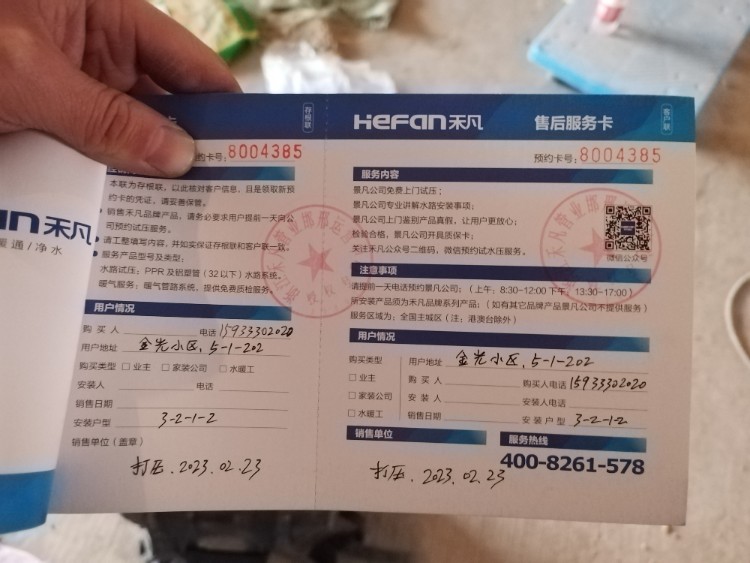 卡
存根联
约卡号:8004385
本联为存根联，以此核对客户信息，且是领取新预
约卡的凭证，请妥善保管。
销售禾凡品牌产品，请务必要求用户提前一天向公
司预约试压服务。
请工整填写内容，并如实保证存根联和客户联一致。
服务产品型号及类型:
水路试压: PPR 及铝塑管（32 以下）水路系统。
暖气服务: 暖气管路系统，提供免费质检服务。
用户情况
购 买 人 电话 15933302020
用户地址 金光小区，5-1-202
购买类型 □ 业主 □ 家装公司 □ 水暖工
安装人 电话
销售日期
安装户型 3-2-1-2
销售单位（盖章）
打压.2023.02.23
an禾凡
暖通/净水
HeFan禾凡
售后服务卡
客户联
预约卡号:8004385
服务内容
景凡公司免费上门试压；
景凡公司专业讲解水路安装事项；
景凡公司上门鉴别产品真假，让用户更放心；
检验合格，景凡公司开具质保卡；
关注禾凡公众号二维码，微信预约试水压服务。
微信公众号
注意事项
请提前一天电话预约景凡公司:（上午: 8:30-12:00 下午: 13:30-17:00）
所安装产品须为禾凡品牌系列产品:（如有其它品牌产品景凡公司不提供服务）
服务区域为: 全国主城区（注: 港澳台除外）
用户情况
购买类型
□ 业主
□ 家装公司
□ 水暖工
用户地址 金光小区，5-1-202
购 买 人 购买人电话 15933302020
安 装 人 安装人电话
销售日期 安装户型 3-2-1-2
销售单位
服务热线
400-8261-578
打压.2023.02.23